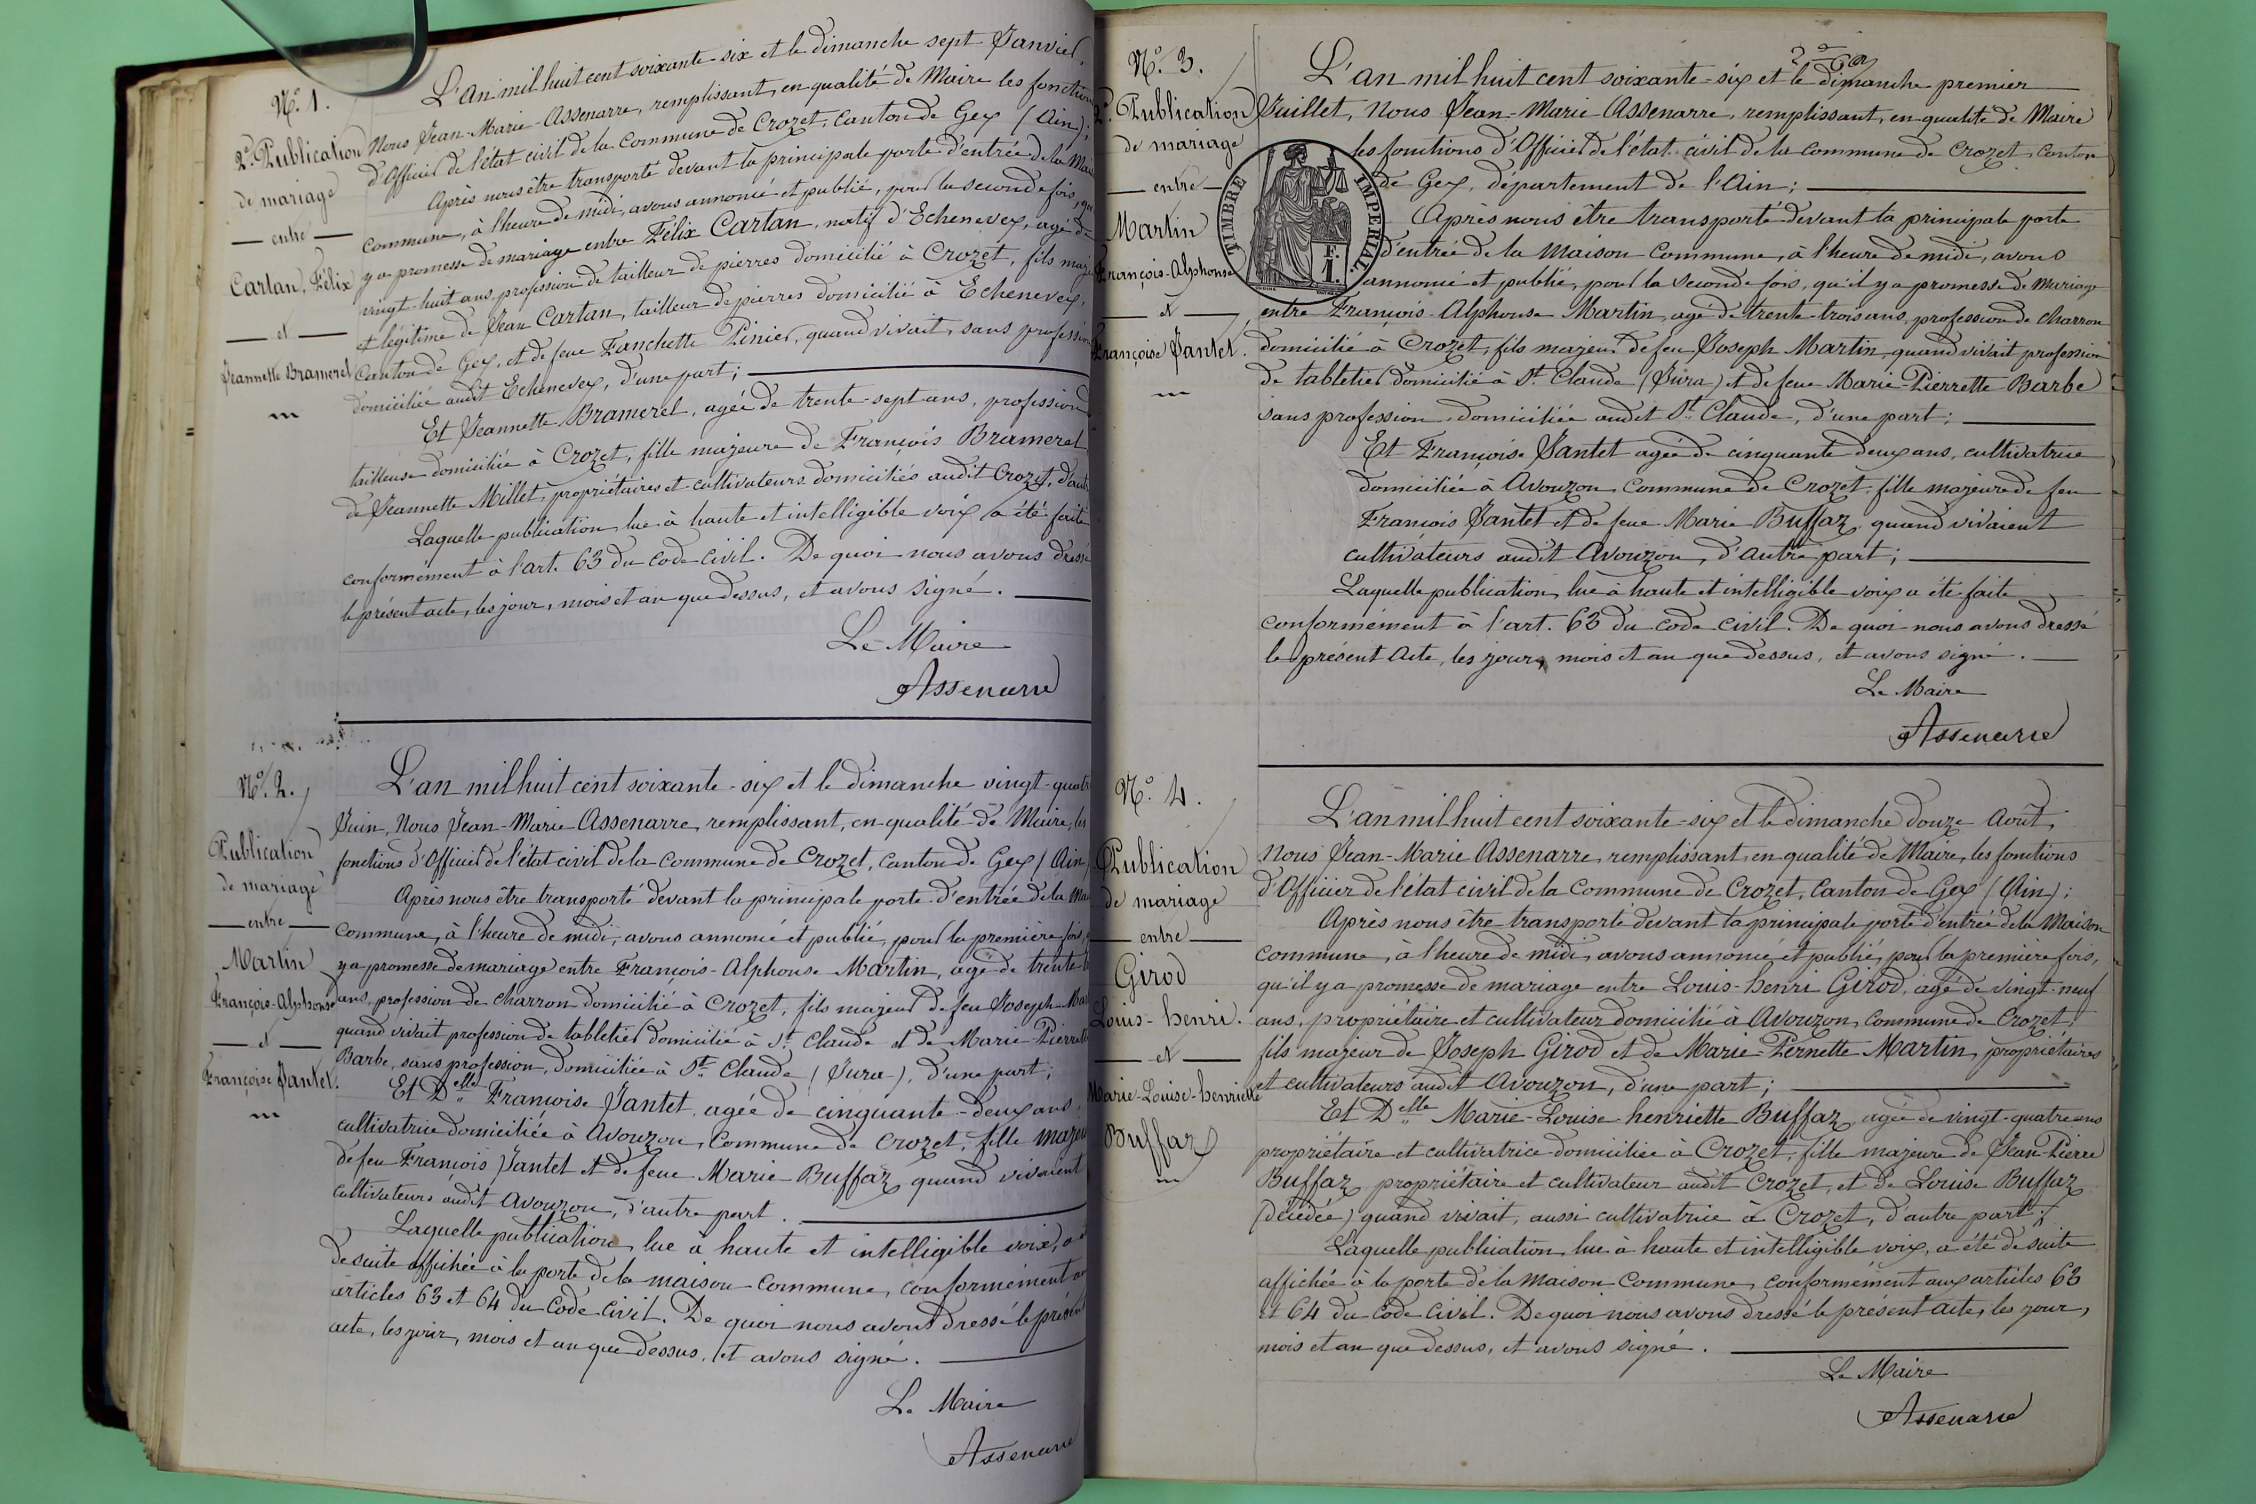 N.º 1.
2.e Publication
de mariage
entre
Cartan, Félix
et
Jeannette Brameret
L'an mil huit cent soixante-six et le dimanche sept Janvier,
Nous Jean-Marie Assenarre, remplissant, en qualité de Maire les fonctions
d'Officier de l'état civil de la Commune de Crozet, Canton de Gex (Ain);
Après nous être transporté devant la principale porte d'entrée de la
commune, à l'heure de midi, avons annoncé et publié, pour la seconde fois,
y a promesse de mariage entre Félix Cartan, natif d'Echenevex, agé de
vingt-huit ans, profession de tailleur de pierres domicilié à Crozet, fils
et légitime de Jean Cartan, tailleur de pierres domicilié à Echenevex,
Canton de Gex, et de feue Fanchette Pinier, quand vivait, sans profession
domiciliée audit Echenevex, d'une part;
Et Jeannette Brameret, agée de trente-sept ans, profession
tailleuse domiciliée à Crozet, fille majeure de François Brameret
de Jeannette Millet, propriétaires et cultivateurs domiciliés audit Crozet,
Laquelle publication, lue à haute et intelligible voix a été faite
conformément à l'art. 63 du code civil. De quoi nous avons dressé
le présent acte, les jour, mois et an que dessus, et avons signé.
Le Maire
Assenarre
N.º 2.
Publication
de mariage
entre
Martin
François-Alphonse
et
Françoise Jantet.
L'an mil huit cent soixante-six et le dimanche vingt-quatre
Juin, Nous Jean-Marie Assenarre, remplissant, en qualité de Maire, les
fonctions d'Officier de l'état civil de la Commune de Crozet, canton de Gex (Ain
Après nous être transporté devant la principale porte d'entrée de la
Commune, à l'heure de midi, avons annoncé et publié, pour la première fois,
y a promesse de mariage entre François-Alphonse Martin, agé de trente
ans, profession de charron domicilié à Crozet, fils majeur de feu Joseph
quand vivait profession de tabletier domicilié à St. Claude et de Marie-Pierrette
Barbe, sans profession, domiciliée à St. Claude (Jura), d'une part;
Et Delle Françoise Jantet, agée de cinquante-deux ans,
cultivatrice domiciliée à Avouzon, Commune de Crozet, fille majeure
de feu François Jantet et de feue Marie Buffaz quand vivaient
cultivateurs audit Avouzon, d'autre part.
Laquelle publication, lue à haute et intelligible voix, a
de suite affichée à la porte de la maison commune, conformément
articles 63 et 64 du Code Civil. De quoi nous avons dressé le présent
acte, les jour, mois et an que dessus, et avons signé.
Le Maire
Assenarre
N.º 3.
2.e Publication
de mariage
entre
Martin
François-Alphonse
et
Françoise Jantet.
TIMBRE IMPERIAL.
F.
1.
L'an mil huit cent soixante-six et le dimanche premier
Juillet, Nous Jean-Marie Assenarre, remplissant, en qualité de Maire
les fonctions d'Officier de l'état civil de la commune de Crozet, canton
de Gex, département de l'Ain;
Après nous être transporté devant la principale porte
d'entrée de la maison commune, à l'heure de midi, avons
annoncé et publié, pour la seconde fois, qu'il y a promesse de mariage
entre François-Alphonse Martin, agé de trente-trois ans, profession de charron
domicilié à Crozet, fils majeur de feu Joseph Martin, quand vivait profession
de tabletier domicilié à St. Claude (Jura) et de feue Marie-Pierrette Barbe
sans profession domiciliée audit St. Claude, d'une part;
Et Françoise Jantet agée de cinquante deux ans, cultivatrice
domiciliée à Avouzon, Commune de Crozet, fille majeure de feu
François Jantet et de feue Marie Buffaz, quand vivaient
cultivateurs audit Avouzon, d'autre part;
Laquelle publication, lue à haute et intelligible voix a été faite
conformément à l'art. 63 du code civil. De quoi nous avons dressé
le présent acte, les jour, mois et an que dessus, et avons signé.
Le Maire
Assenarre
N.º 4.
Publication
de mariage
entre
Girod
Louis-henri.
et
Marie-Louise-henriette
Buffaz
L'an mil huit cent soixante-six et le dimanche douze Août,
Nous Jean-Marie Assenarre, remplissant, en qualité de Maire, les fonctions
d'Officier de l'état civil de la Commune de Crozet, Canton de Gex (Ain);
Après nous être transporté devant la principale porte d'entrée de la Maison
commune, à l'heure de midi, avons annoncé et publié, pour la première fois,
qu'il y a promesse de mariage entre Louis-henri Girod, agé de vingt-neuf
ans, propriétaire et cultivateur domicilié à Avouzon, Commune de Crozet,
fils majeur de Joseph Girod et de Marie-Pernette Martin, propriétaires
et cultivateurs audit Avouzon, d'une part;
Et Delle Marie-Louise-henriette Buffaz, agée de vingt-quatre ans
propriétaire et cultivatrice domiciliée à Crozet, fille majeure de Jean-Pierre
Buffaz, propriétaire et cultivateur audit Crozet, et de Louise Buffaz
(décédée) quand vivait, aussi cultivatrice à Crozet, d'autre part;
Laquelle publication, lue à haute et intelligible voix, a été de suite
affichée à la porte de la Maison Commune, conformément aux articles 63
et 64 du Code Civil. De quoi nous avons dressé le présent acte, les jour,
mois et an que dessus, et avons signé.
Le Maire
Assenarre